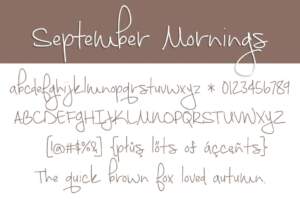 September Mornings
abcdefghijklmnopqrstuvwxyz * 0123456789
ABCDEFGHIJKLMNOPQRSTUVWXYZ
[!@#$%&] {plüs löts of áççénts}
The quick brown fox loved autumn.